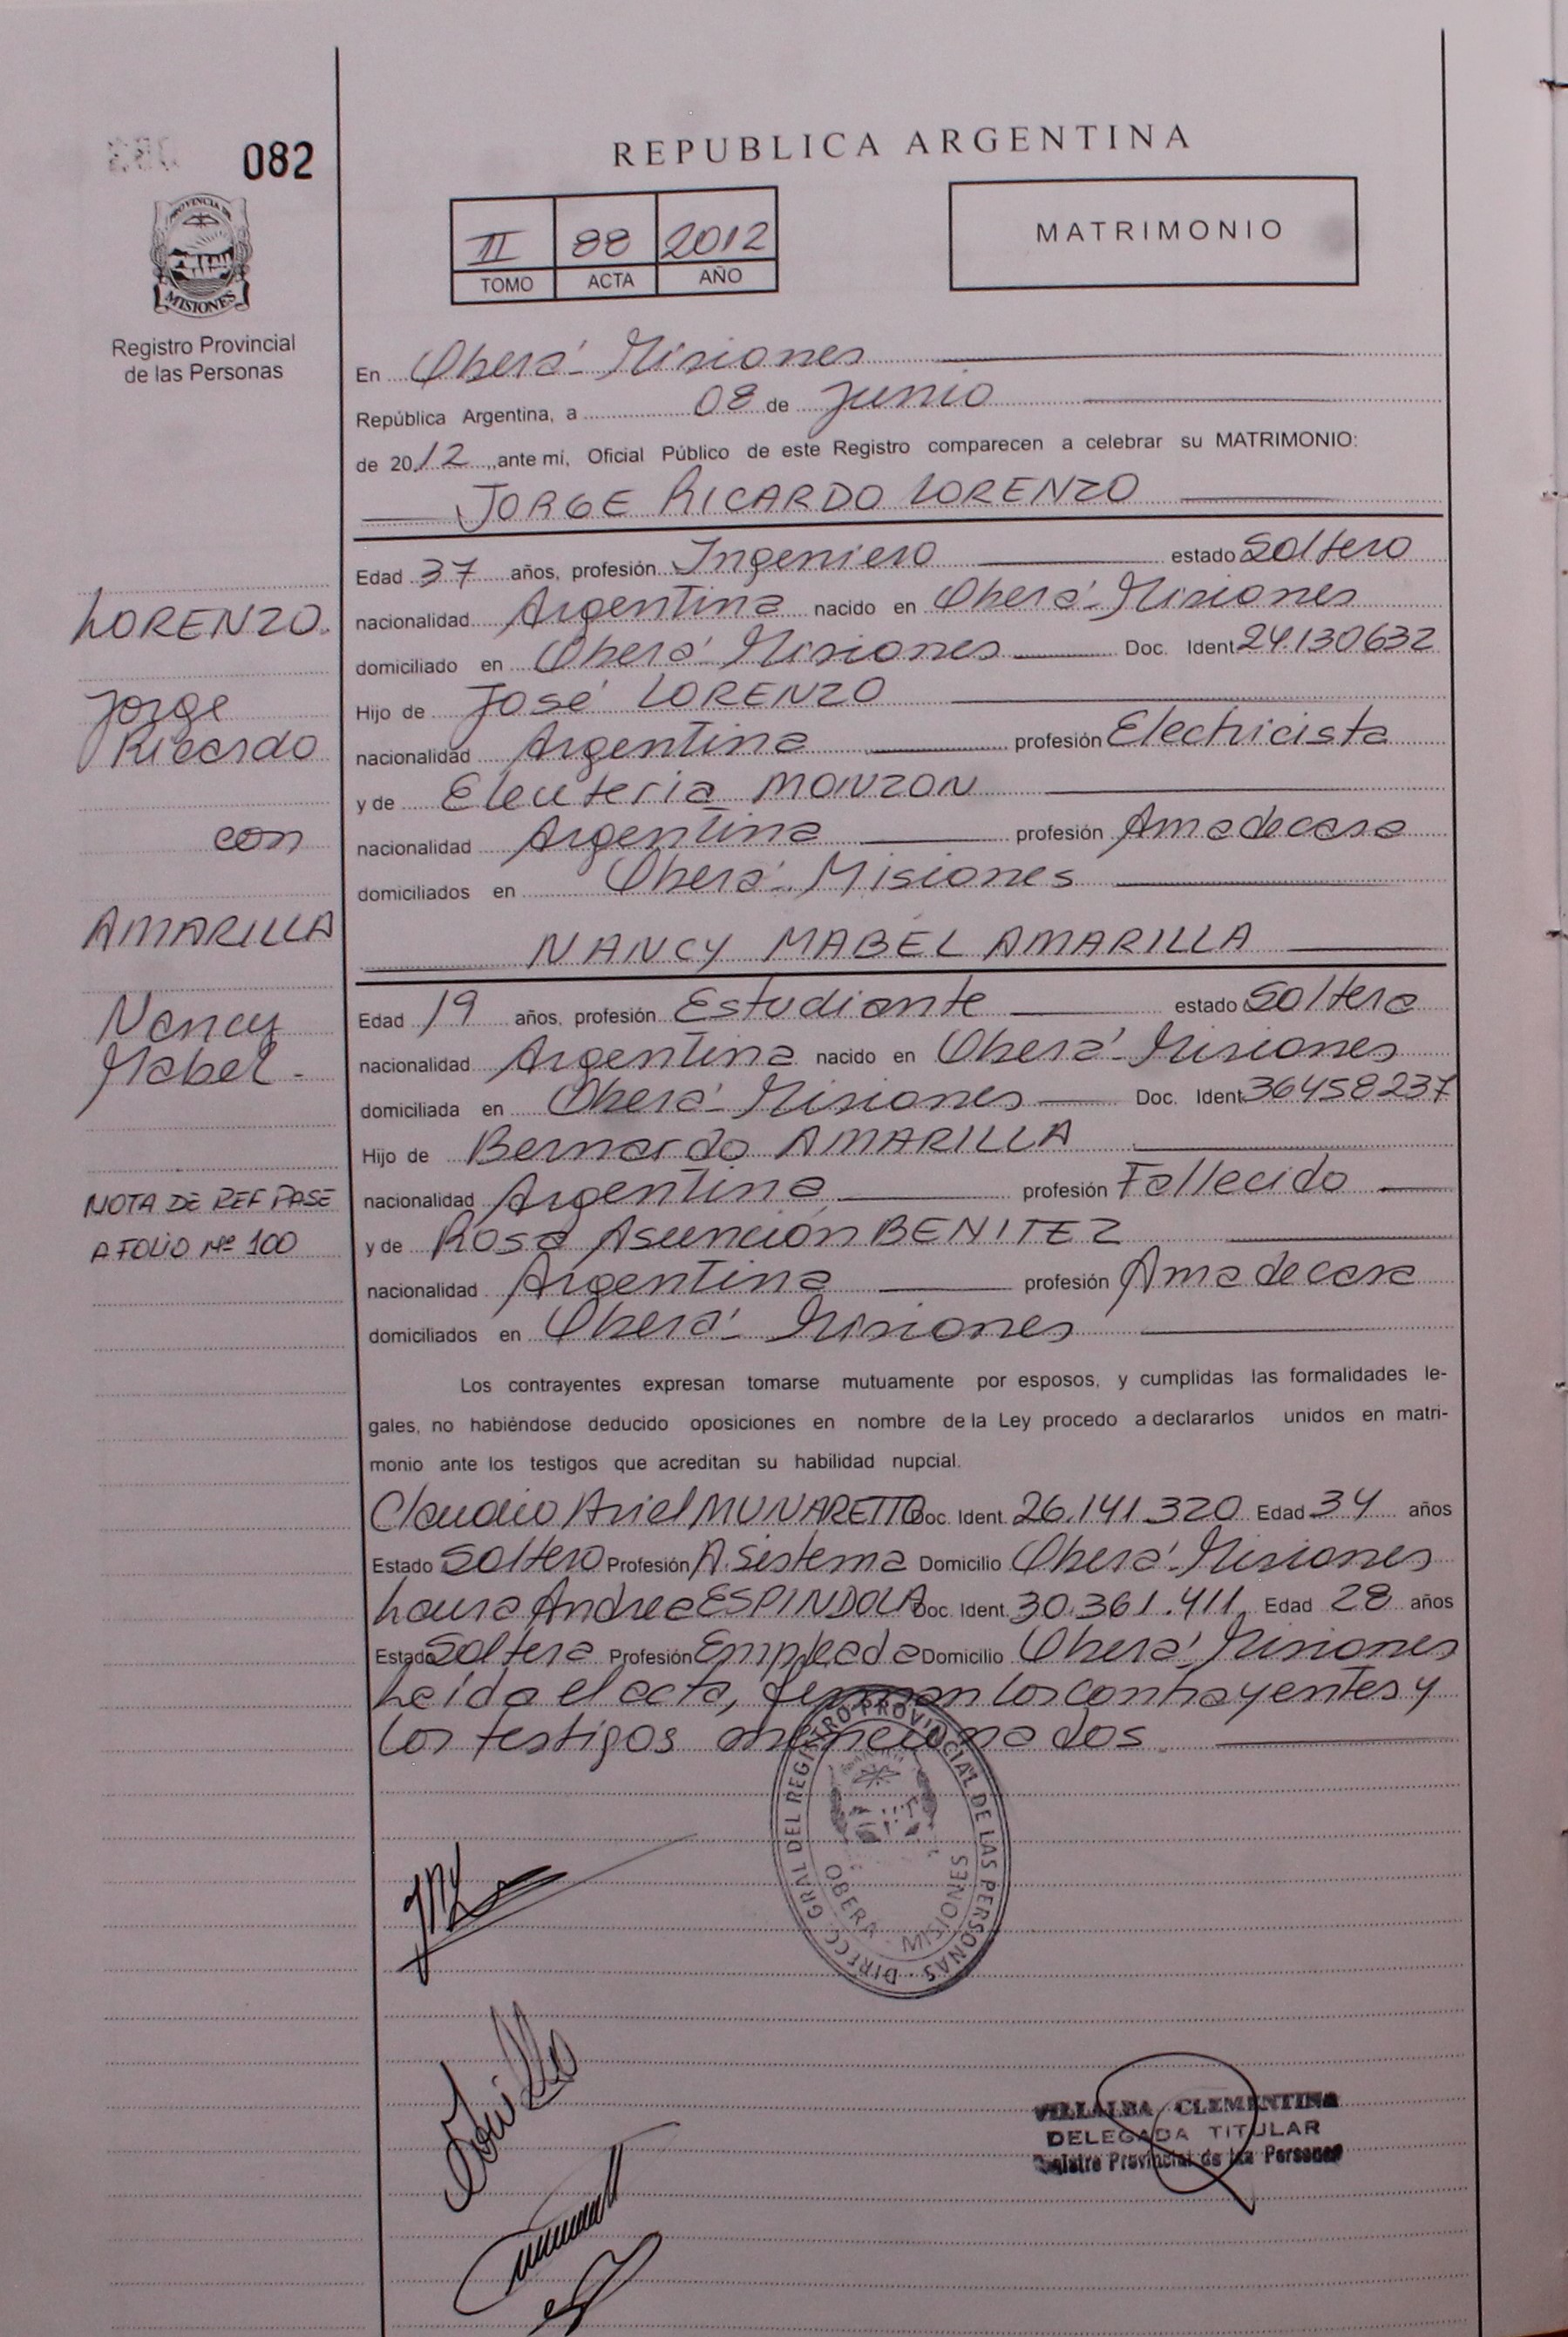 082
PROVINCIA DE
MISIONES
Registro Provincial
de las Personas
REPUBLICA ARGENTINA
II 88 2012
TOMO ACTA AÑO
MATRIMONIO
En Oberá - Misiones
República Argentina, a 08 de Junio
de 2012, ante mí, Oficial Público de este Registro comparecen a celebrar su MATRIMONIO:
JORGE RICARDO LORENZO
Edad 37 años, profesión Ingeniero estado Soltero
nacionalidad Argentina nacido en Oberá - Misiones
domiciliado en Oberá - Misiones Doc. Ident 24.130632
Hijo de José LORENZO
nacionalidad Argentina profesión Electricista
y de Eleuteria MONZON
nacionalidad Argentina profesión Ama de casa
domiciliados en Oberá - Misiones
NANCY MABEL AMARILLA
Edad 19 años, profesión Estudiante estado Soltera
nacionalidad Argentina nacido en Oberá - Misiones
domiciliada en Oberá - Misiones Doc. Ident. 36458237
Hijo de Bernardo AMARILLA
nacionalidad Argentina profesión Fallecido
y de Rosa Asunción BENITEZ
nacionalidad Argentina profesión Ama de casa
domiciliados en Oberá - Misiones
Los contrayentes expresan tomarse mutuamente por esposos, y cumplidas las formalidades le-
gales, no habiéndose deducido oposiciones en nombre de la Ley procedo a declararlos unidos en matri-
monio ante los testigos que acreditan su habilidad nupcial.
Claudio Ariel MUNARETTO Doc. Ident. 26.141.320 Edad 34 años
Estado Soltero Profesión A. Sistema Domicilio Oberá - Misiones
Laura Andrea ESPINDOLA Doc. Ident. 30.361.411 Edad 28 años
Estado Soltera Profesión Empleada Domicilio Oberá - Misiones
Leída el acta, firman los contrayentes y
los testigos mencionados.
LORENZO.
Jorge
Ricardo
con
AMARILLA
Nancy
Mabel -
NOTA DE REF PASE
A FOLIO Nº 100
DIRECC. GRAL DEL REGISTRO PROVINCIAL DE LAS PERSONAS
OBERA - MISIONES
VILLALBA CLEMENTINA
DELEGADA TITULAR
Registro Provincial de las Personas